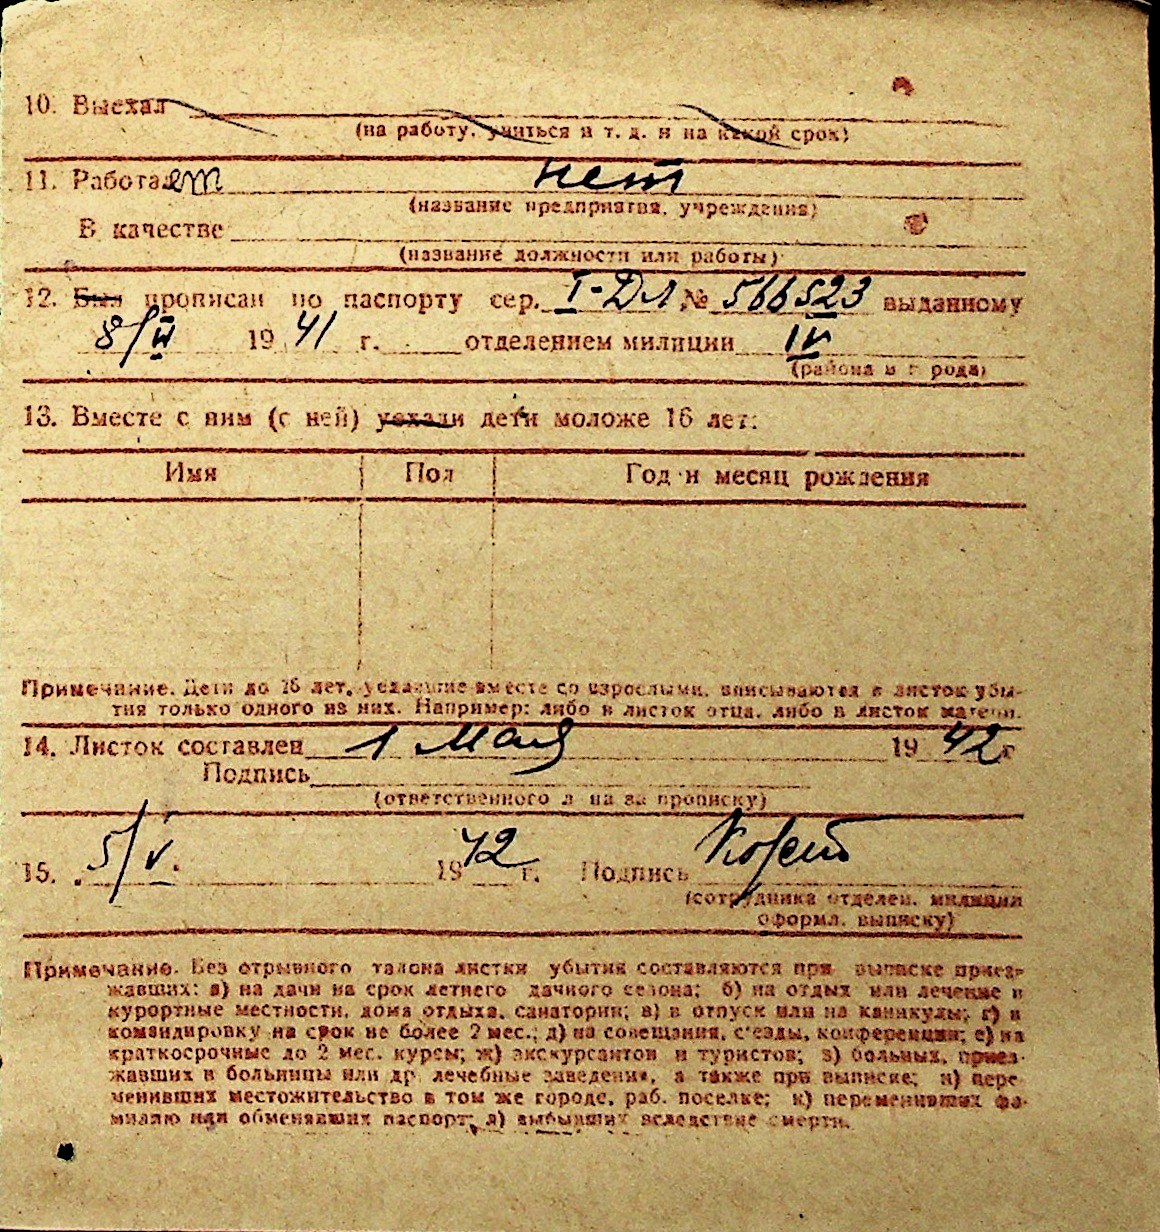 10. Выехал
(на работу, учиться и т. д. и на какой срок)
11. Работает нет
(название предприятия, учреждения)
В качестве
(название должности или работы)
12. Был прописан по паспорту сер. I-ДЛ № 566523 выданному
8/VI 1941 г. отделением милиции IV
(района и города)
13. Вместе с ним (с ней) уехали дети моложе 16 лет:
Имя Пол Год и месяц рождения
Примечание. Дети до 16 лет, уехавшие вместе со взрослыми, вписываются в листок убы-
тия только одного из них. Например: либо в листок отца, либо в листок матери.
14. Листок составлен 1 Мая 1942 г
Подпись
(ответственного лица за прописку)
15. 5/V. 1942 г. Подпись
(сотрудника отделен. милиции
оформл. выписку)
Примечание. Без отрывного талона листки убытия составляются при выписке приез-
жавших: а) на дачи на срок летнего дачного сезона; б) на отдых или лечение в
курортные местности, дома отдыха, санатории; в) в отпуск или на каникулы; г) в
командировку на срок не более 2 мес.; д) на совещания, съезды, конференции; е) на
краткосрочные до 2 мес. курсы; ж) экскурсантов и туристов; з) больных, приез-
жавших в больницы или др. лечебные заведения, а также при выписке; и) пере-
менивших местожительство в том же городе, раб. поселке; к) переменивших фа-
милию или обменявших паспорт; л) выбывших вследствие смерти.